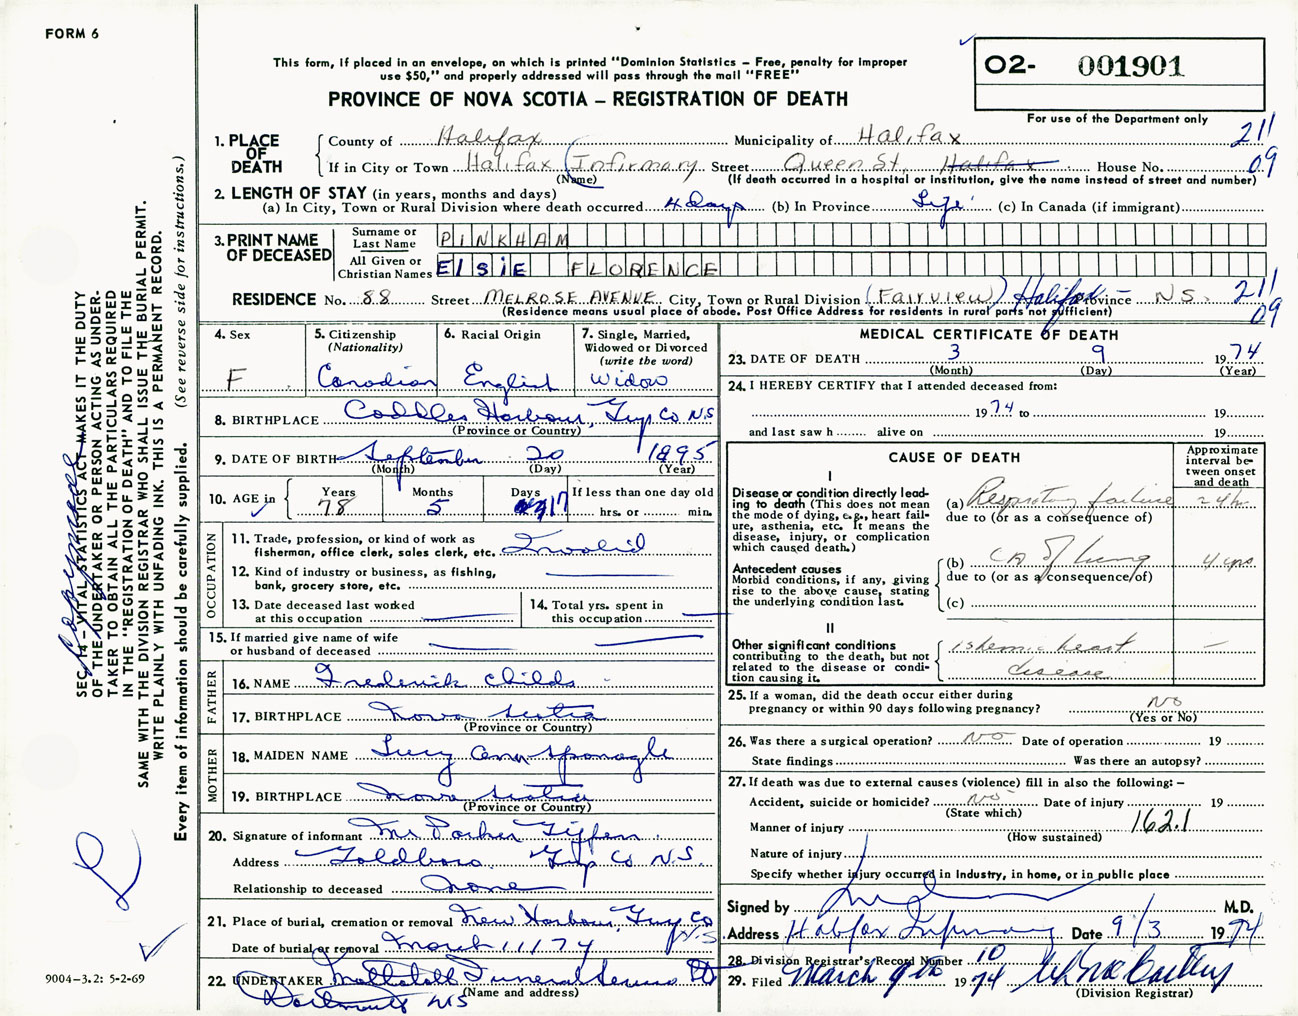 FORM 6
This form, if placed in an envelope, on which is printed "Dominion Statistics – Free, penalty for improper
use $50," and properly addressed will pass through the mail "FREE"
PROVINCE OF NOVA SCOTIA – REGISTRATION OF DEATH
O2- 001901
For use of the Department only
211
09
1. PLACE OF DEATH
County of Halifax Municipality of Halifax
If in City or Town Halifax Infirmary Street Queen St. Halifax House No.
(Name) (If death occurred in a hospital or institution, give the name instead of street and number)
2. LENGTH OF STAY (in years, months and days)
(a) In City, Town or Rural Division where death occurred 4 days (b) In Province Life (c) In Canada (if immigrant)
3. PRINT NAME OF DECEASED
Surname or Last Name PINKHAM
All Given or Christian Names ELSIE FLORENCE
RESIDENCE No. 88 Street MELROSE AVENUE City, Town or Rural Division (FAIRVIEW) Halifax Province N.S. 211
(Residence means usual place of abode. Post Office Address for residents in rural parts not sufficient) 09
4. Sex F
5. Citizenship (Nationality) Canadian
6. Racial Origin English
7. Single, Married, Widowed or Divorced (write the word) Widow
8. BIRTHPLACE Coddles Harbour, Guy Co N.S
(Province or Country)
9. DATE OF BIRTH September 20 1895
(Month) (Day) (Year)
10. AGE in Years 78 Months 5 Days 17 If less than one day old hrs. or min.
OCCUPATION
11. Trade, profession, or kind of work as fisherman, office clerk, sales clerk, etc. Invalid
12. Kind of industry or business, as fishing, bank, grocery store, etc.
13. Date deceased last worked at this occupation
14. Total yrs. spent in this occupation
15. If married give name of wife or husband of deceased
FATHER
16. NAME Frederick Childs
17. BIRTHPLACE Nova Scotia
(Province or Country)
MOTHER
18. MAIDEN NAME Lucy Ann Sponagle
19. BIRTHPLACE Nova Scotia
(Province or Country)
20. Signature of informant Mr Parker Giffin
Address Goldboro Guy Co N.S.
Relationship to deceased none
21. Place of burial, cremation or removal New Harbour, Guy Co N.S
Date of burial or removal March 11/74
22. UNDERTAKER Funeral Service
Dartmouth NS (Name and address)
MEDICAL CERTIFICATE OF DEATH
23. DATE OF DEATH 3 9 1974
(Month) (Day) (Year)
24. I HEREBY CERTIFY that I attended deceased from:
1974 to 19
and last saw h alive on 19
CAUSE OF DEATH
Approximate interval between onset and death
I
Disease or condition directly leading to death (This does not mean the mode of dying, e.g., heart failure, asthenia, etc. It means the disease, injury, or complication which caused death.)
(a) Respiratory failure 24 hr
due to (or as a consequence of)
Antecedent causes
Morbid conditions, if any, giving rise to the above cause, stating the underlying condition last.
(b) CA of lung 4 yrs
due to (or as a consequence of)
(c)
II
Other significant conditions contributing to the death, but not related to the disease or condition causing it.
ischemic heart disease –
25. If a woman, did the death occur either during pregnancy or within 90 days following pregnancy? NO
(Yes or No)
26. Was there a surgical operation? NO Date of operation 19
State findings Was there an autopsy?
27. If death was due to external causes (violence) fill in also the following: –
Accident, suicide or homicide? NO Date of injury 19
(State which)
Manner of injury 162.1
(How sustained)
Nature of injury
Specify whether injury occurred in Industry, in home, or in public place
Signed by M.D.
Address Halifax Infirmary Date 9/3 1974
28. Division Registrar's Record Number 10
29. Filed March 9th 1974
(Division Registrar)
SEC. 14 – VITAL STATISTICS ACT MAKES IT THE DUTY
OF THE UNDERTAKER OR PERSON ACTING AS UNDER-
TAKER TO OBTAIN ALL THE PARTICULARS REQUIRED
IN THE "REGISTRATION OF DEATH" AND TO FILE THE
SAME WITH THE DIVISION REGISTRAR WHO SHALL ISSUE THE BURIAL PERMIT.
WRITE PLAINLY WITH UNFADING INK. THIS IS A PERMANENT RECORD.
Every item of information should be carefully supplied. (See reverse side for instructions.)
9004–3.2: 5-2-69